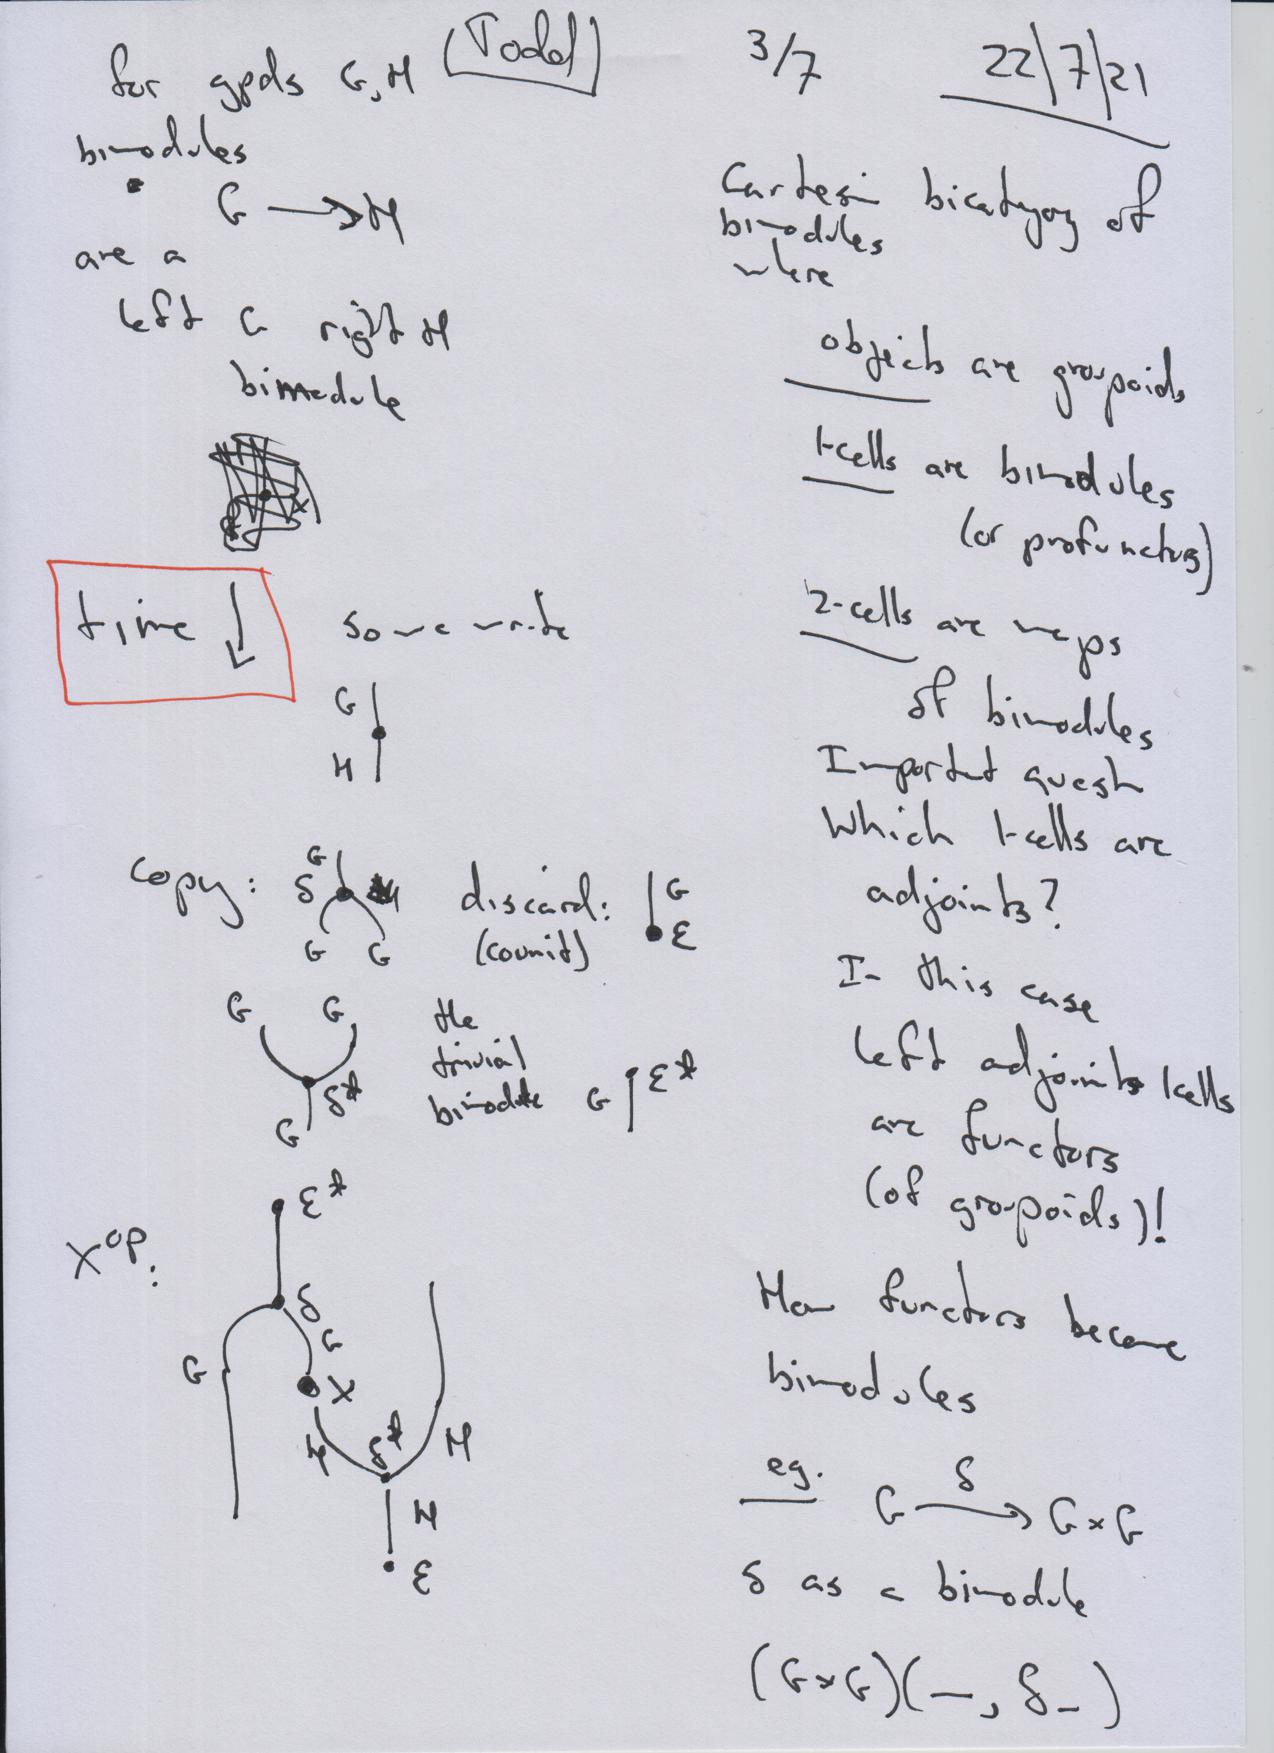 for gpds G, H (Todd)
bimodules
G → H
are a
left G right H
bimodule
time ↓ some write
G
H
copy: G δ
G G
discard: G
(counit) ε
G G the
δ* trivial
G bimodule G ε*
ε*
X^op:
δ
G G
X
H δ* H
H
ε
3/7 22/7/21
Cartesin bicategory of
bimodules
where
objects are groupoids
1-cells are bimodules
(or profunctors)
2-cells are maps
of bimodules
Important questn
Which 1-cells are
adjoints?
In this case
left adjoints 1cells
are functors
(of groupoids)!
How functors become
bimodules
eg. G δ→ G×G
δ as a bimodule
(G×G)(—, δ–)